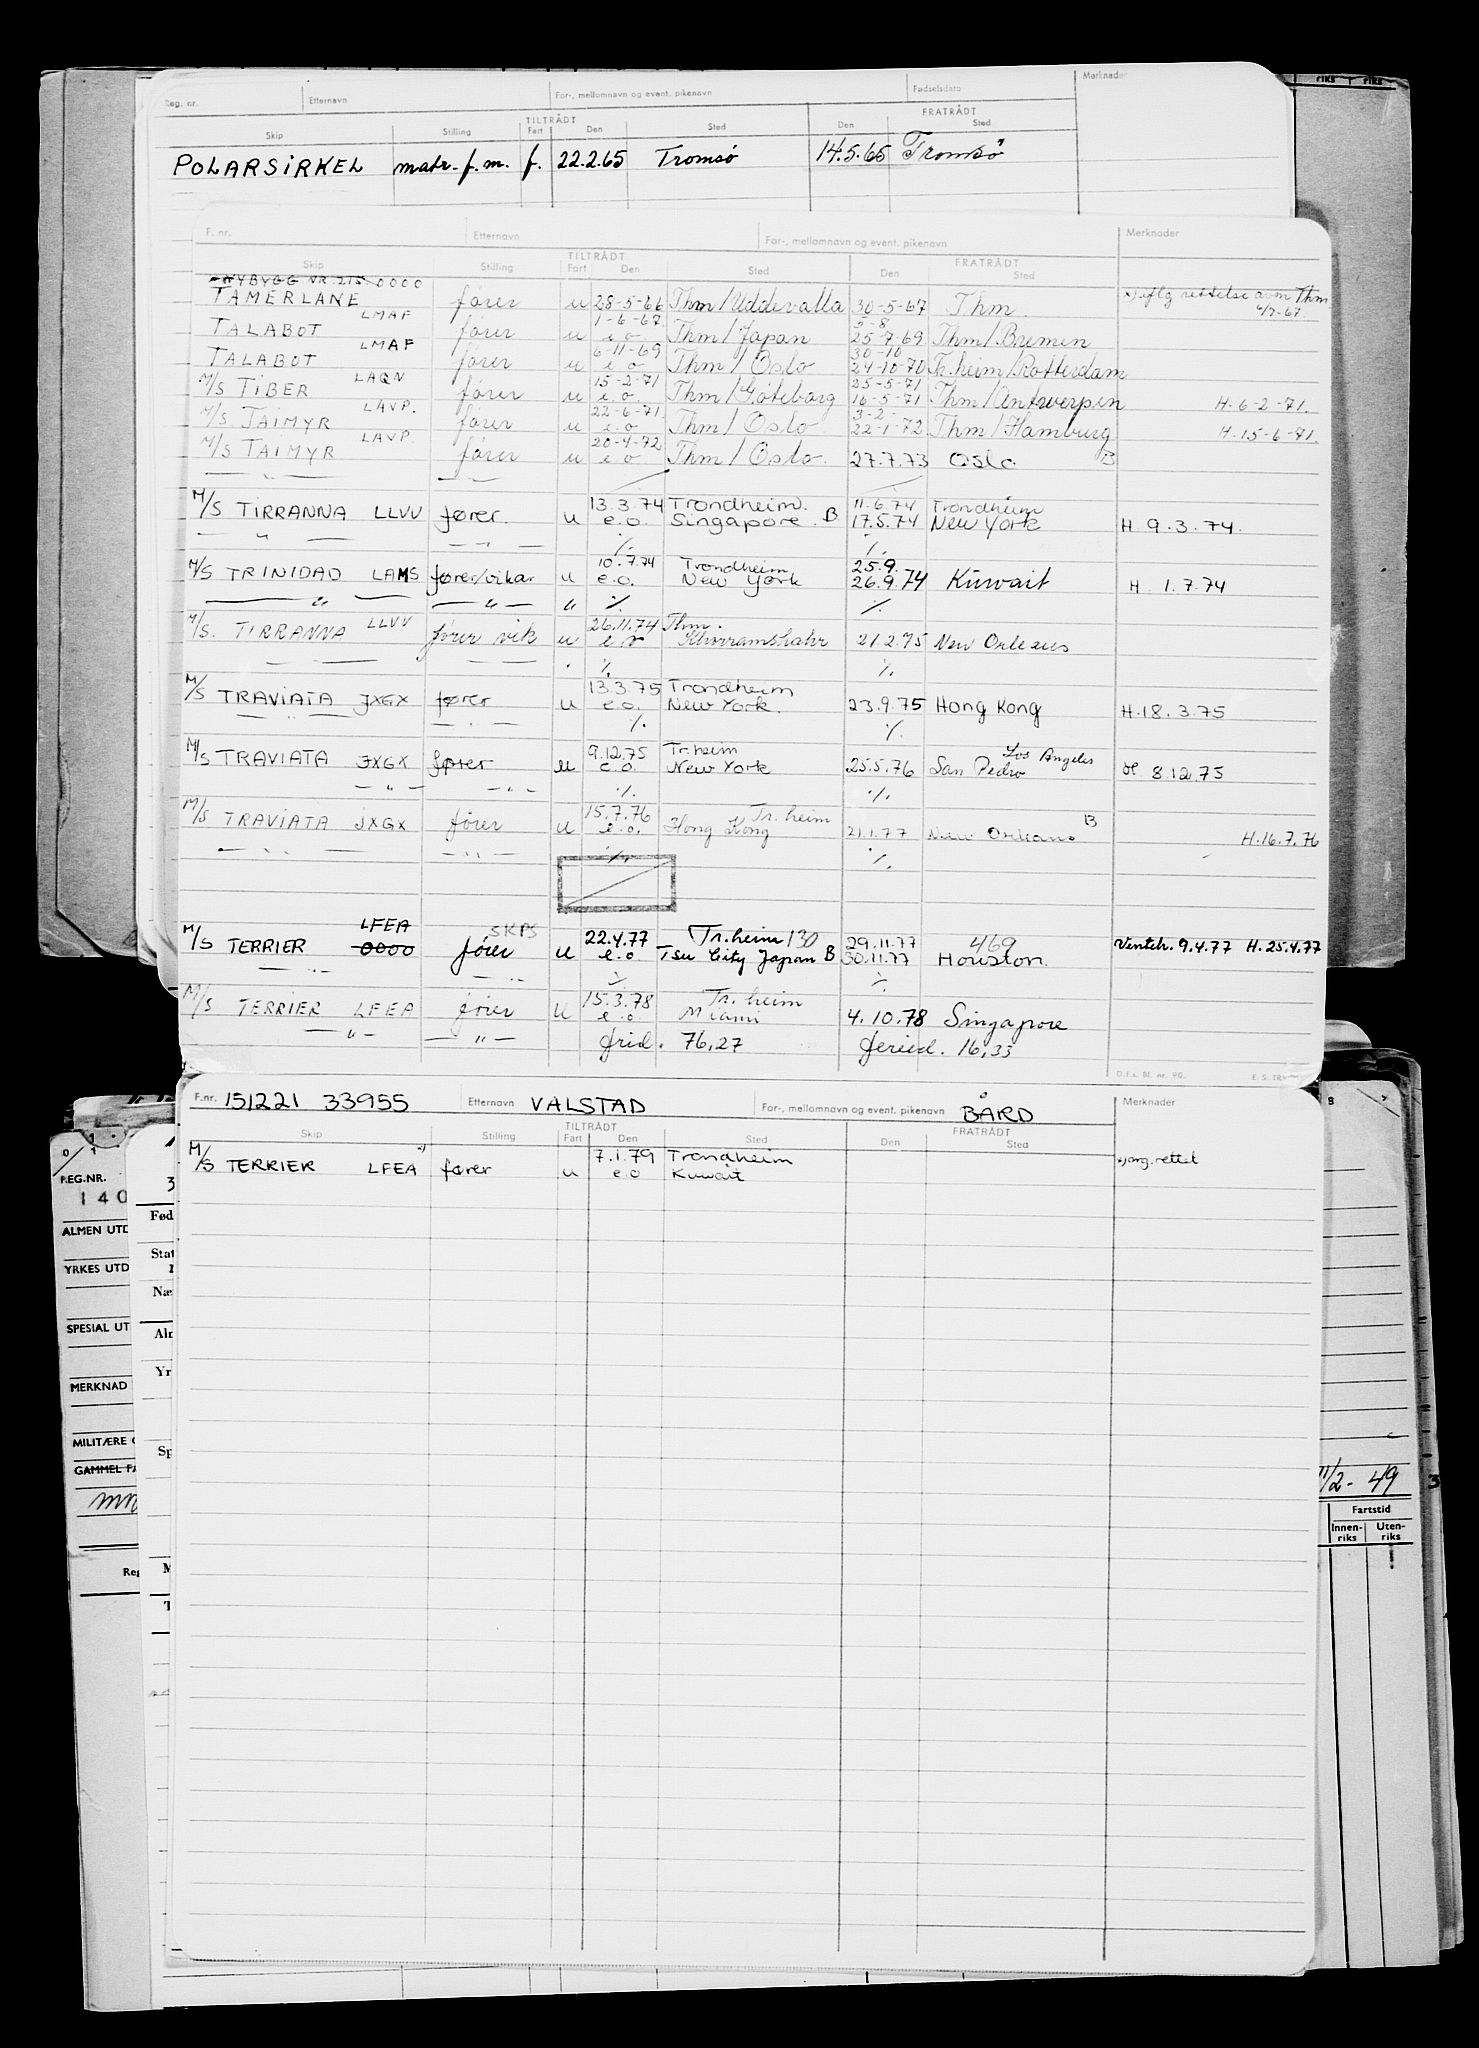 Reg. nr. Etternavn For-, mellomnavn og event. pikenavn Fødselsdato Merknader
TILTRÅDT FRATRÅDT
Skip Stilling Fart Den Sted Den Sted
POLARSIRKEL matr. f. m. f. 22.2.65 Tromsø 14.5.65 Tromsø
F. nr. Etternavn For-, mellomnavn og event. pikenavn Merknader
TILTRÅDT FRATRÅDT
Skip Stilling Fart Den Sted Den Sted
NYBYGG NR. 215. 0000
TAMERLANE fører u 28-5-66 Thm/Uddevalla 30-5-67 Thm. x) iflg rettelse avm Thm
LMAF 1-6-67 5-8 6/7-67.
TALABOT fører u e o Thm/Japan 25-7-69 Thm/Bremen
LMAF 6-11-69 30-10
TALABOT fører u e o Thm/Oslo 24-10-70 Tr.heim/Rotterdam
LAQN 15-2-71 25-5-71
M/S TIBER fører u e.o. Thm/Göteborg 16-5-71 Thm/Antwerpen H. 6-2-71.
LAVP. 22-6-71 3-2-
M/S TAIMYR fører u e.o Thm/Oslo 22-1-72 Thm/Hamburg H. 15-6-71.
LAVP. 20-4-72
M/S TAIMYR fører u e o Thm/Oslo. 27.7.73 Oslo B
— " — — " —
13.3.74 Trondheim. 11.6.74 Trondheim
M/S TIRRANNA LLVV fører. u e.o. Singapore. B 17.5.74 New York H. 9.3.74.
— " — — " — ·/. ·/.
10.7.74 Trondheim 25.9.
M/S TRINIDAD LAMS fører/vikar u e.o. New York 26.9.74 Kuwait H. 1.7.74
— " — — " — " ·/. ·/.
LLVV 26.11.74 Thm.
M/S. TIRRANNA fører vik u e o Khorramshahr 21.2.75 New Orleans
— " — — " — ·/. ·/.
13.3.75 Trondheim
M/S TRAVIATA JXGX fører u e.o. New York. 23.9.75 Hong Kong H.18.3.75
— " — — " — ·/. ·/.
9.12.75 Tr.heim Los Angeles
M/S TRAVIATA JXGX fører u e.o. New York 25.5.76 San Pedro H 8.12.75
— " — — " — ·/. ·/.
15.7.76 Tr. heim B
M/S TRAVIATA JXGX fører u e.o. Hong Kong 21.1.77 New Orleans H.16.7.76
— " — — " — ·/. ·/.
LFEA SKPS 22.4.77 Tr.heim 130 29.11.77 469
M/S TERRIER 0000 fører u e.o Tsu City Japan B 30.11.77 Houston. Venteh. 9.4.77 H. 25.4.77
— " — — " — ·/. ·/.
15.3.78 Tr. heim
M/S TERRIER LFEA fører u e.o Miami 4.10.78 Singapore
— " — — " — frid. 76,27 feried. 16,33
D.f.s. Bl. nr. 90.
F.nr. 151221 33955 Etternavn VALSTAD For-, mellomnavn og event. pikenavn BÅRD Merknader
TILTRÅDT FRATRÅDT
Skip Stilling Fart Den Sted Den Sted
7.1.79 Trondheim
M/S TERRIER LFEA x) fører u e.o Kuwait x) arg. rettet
REG.NR.
140
ALMEN UTD
YRKES UTD
SPESIAL UT
MERKNAD
MILITÆRE
GAMMEL
Fød
Stat
Næ
Aln
Yr
Sp
Reg
11/2-49 3
Fartstid
Innen-riks Uten-riks